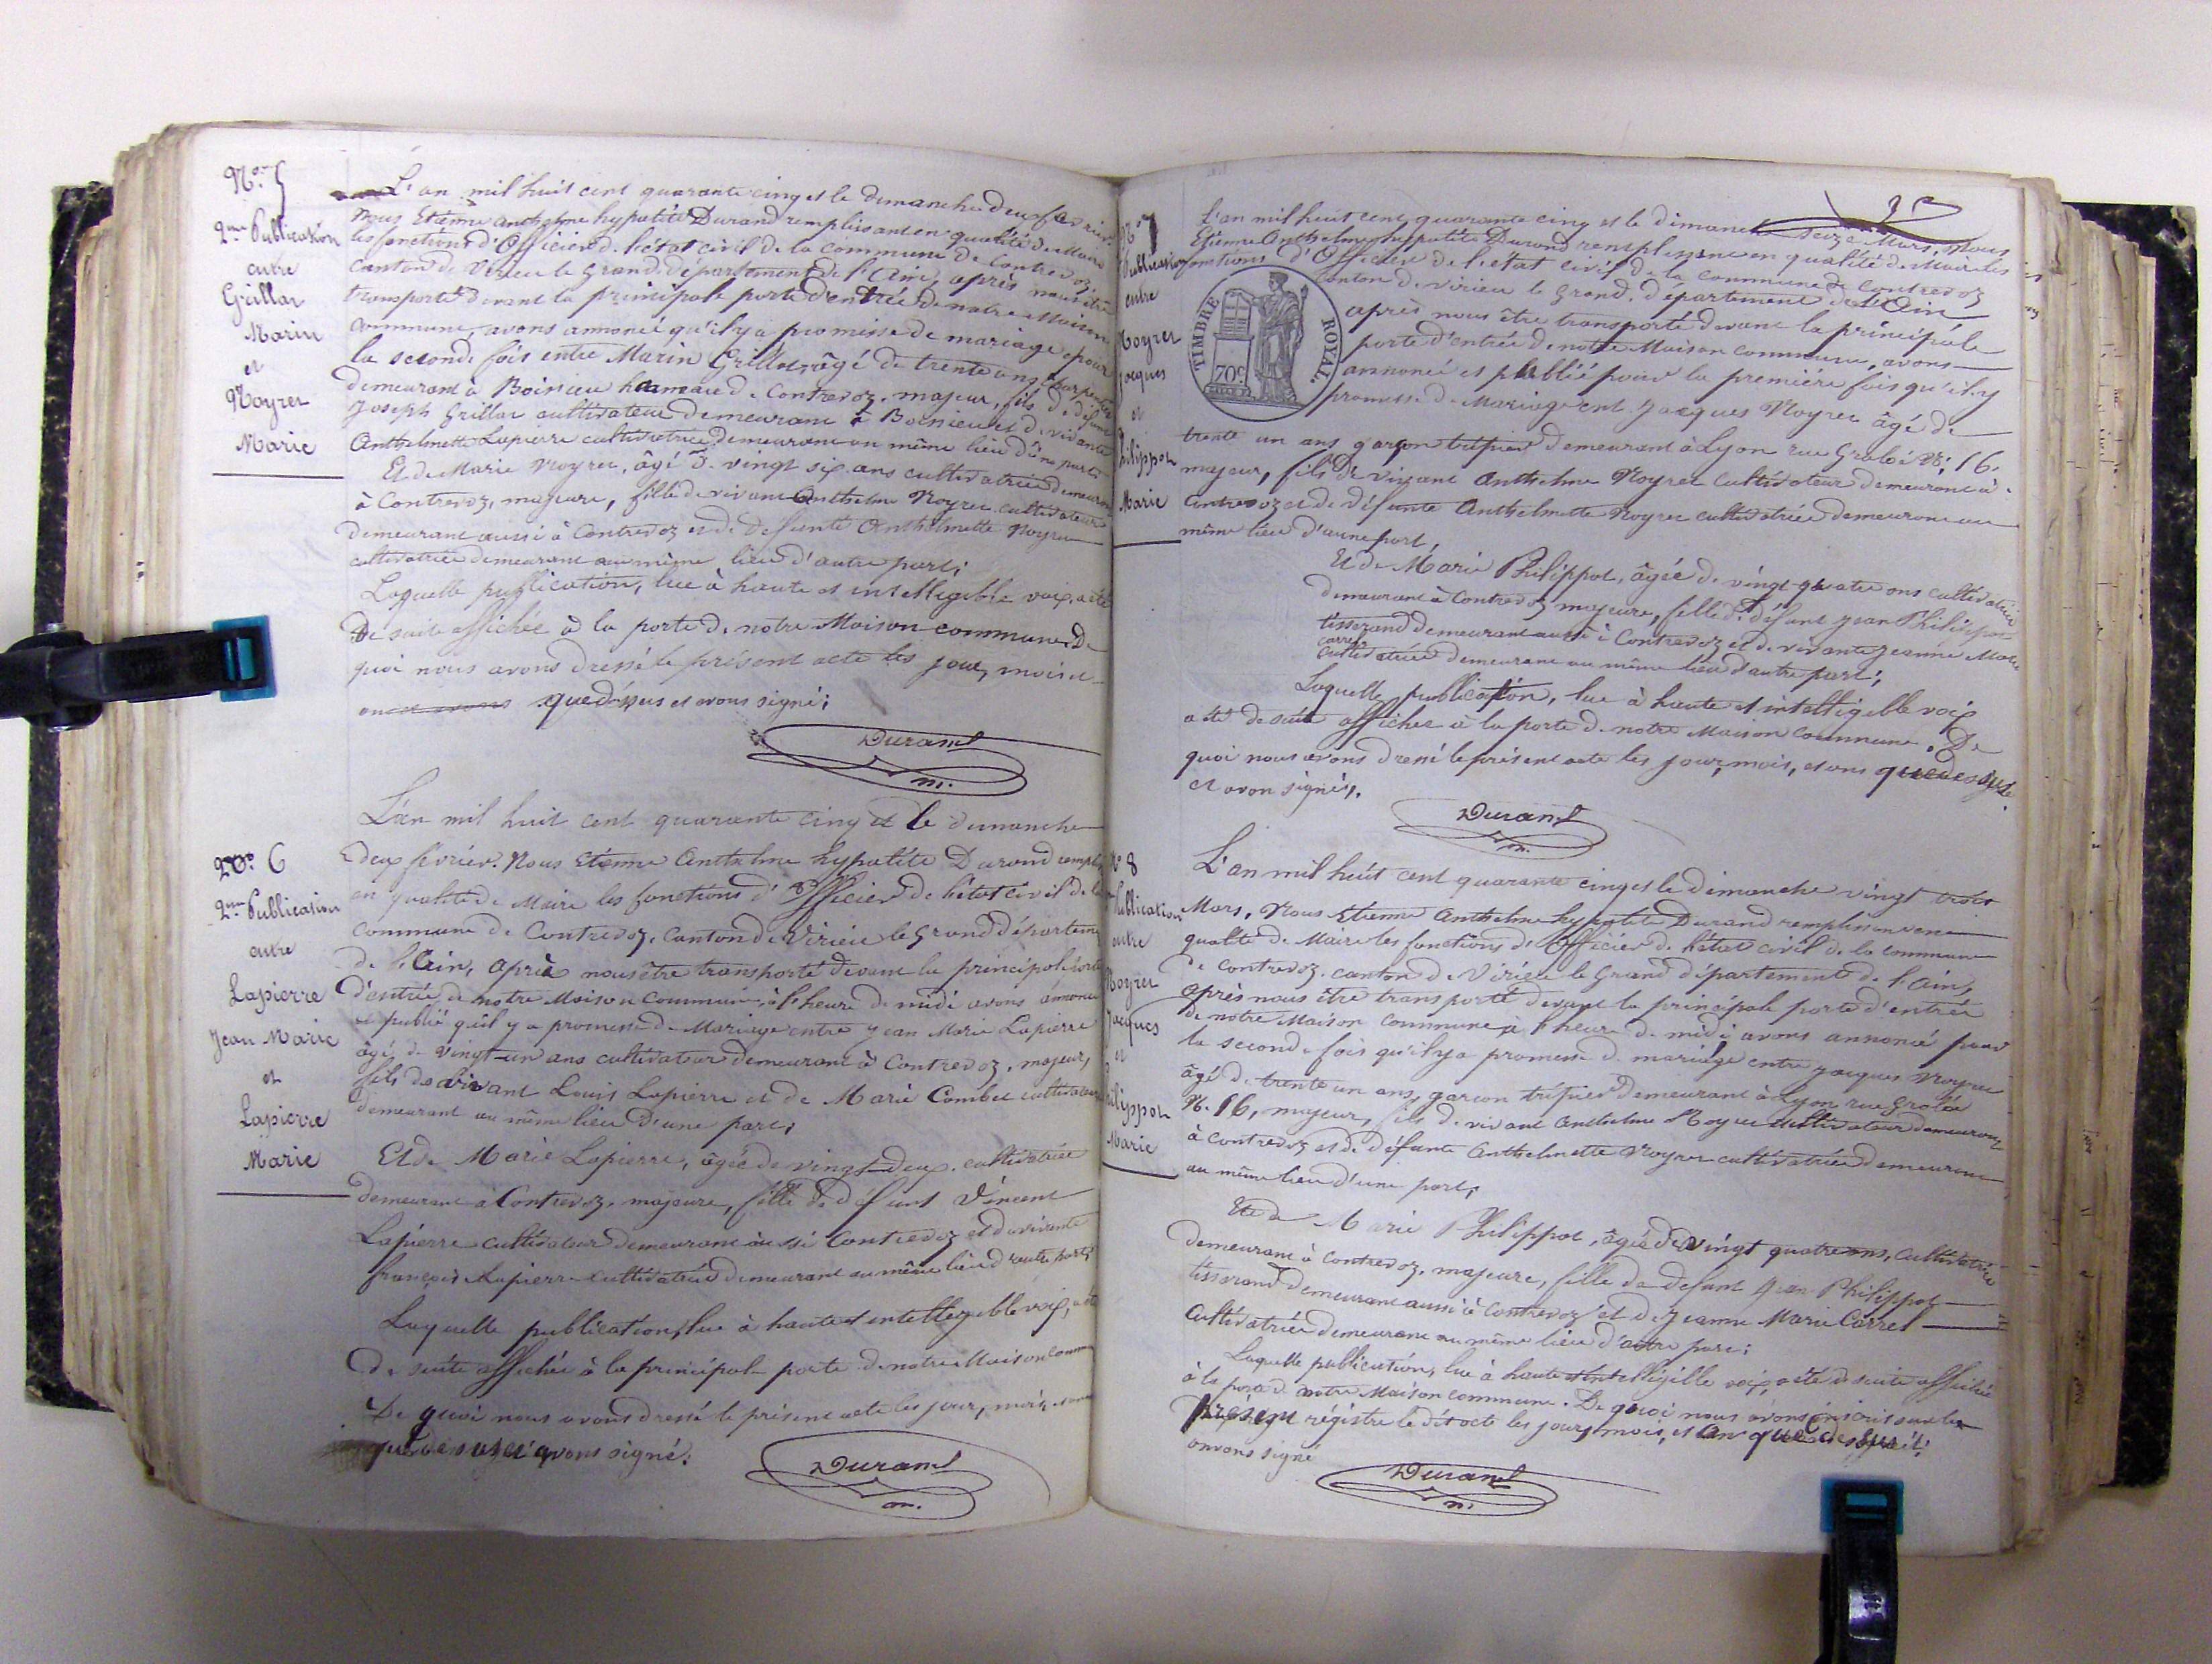 No. 5
2me Publication
entre
Grillat
Marin
et
Noyrer
Marie
L'an mil huit cent quarante cinq et le dimanche deux février
Nous Etienne Anthelme hypolite Durand remplissant en qualité de Maire
les fonctions d'Officier de l'état civil de la commune de Contrevoz,
canton de Virieu le Grand, département de l'Ain, après nous être
transporté devant la principale porte d'entrée de notre Maison
commune, avons annoncé qu'il y a promisse de mariage pour
la seconde fois entre Marin Grillat, âgé de trente ans
demeurant à Boisieu hameau de Contrevoz, majeur, fils de défunt
Joseph Grillat cultivateur demeurant à Boisieu et de vivante
Anthelmette Lapierre cultivatrice demeurant au même lieu d'une part
Et de Marie Noyrer, âgé de vingt six ans cultivatrice demeurant
à Contrevoz, majeure, fille de vivant Anthelme Noyrer cultivateur
demeurant aussi à Contrevoz et de defunte Anthelmette Noyrer
cultivatrice demeurant au même lieu d'autre part;
Laquelle publication, lue à haute et intelligible voix, a été
De suite affichée à la porte de notre Maison commune. De
quoi nous avons dressé le présent acte les jour, mois et
an que dessus et avons signé;
Durand
m.
No. 6
2me Publication
entre
Lapierre
Jean Marie
et
Lapierre
Marie
L'an mil huit cent quarante cinq et le dimanche
deux février. Nous Etienne Anthelme hypolite Durand rempliss
en qualité de Maire les fonctions d'Officier de l'état civil de la
commune de Contrevoz, canton de Virieu le Grand département
de l'Ain, après nous être transporté devant la principale porte
d'entrée de notre Maison commune, à l'heure de midi avons annoncé
et publié qu'il y a promesse de Mariage entre Jean Marie Lapierre
âgé de vingt-un ans cultivateur demeurant à Contrevoz, majeur,
fils de vivant Louis Lapierre et de Marie Combet cultivateurs
demeurant au même lieu d'une part;
Et de Marie Lapierre, âgée de vingt-deux, cultivatrice
demeurant à Contrevoz, majeure, fille de défunt Vincent
Lapierre cultivateur demeurant aussi Contrevoz et de vivante
françoise Lapierre cultivatrice demeurant au même lieu d'autre part,
Laquelle publication, lue à haute et intelligible voix, a été
de suite affichée à la principale porte de notre Maison commu
De quoi nous avons dressé le présent acte les jour, mois et an
que dessus et avons signé.
Durand
m.
No 7
Publication
entre
Noyrer
Jacques
et
Philippot
Marie
L'an mil huit cent quarante cinq et le dimanche seize Mars, Nous
Etienne Anthelme hypolite Durand remplissant en qualité de Maire les
fonctions d'Officier de l'état civil de la commune de Contrevoz
canton de Virieu le Grand, département de l'Ain
TIMBRE ROYAL.
70c
après nous être transporté devant la principale
porte d'entrée de notre Maison commune, avons
annoncé et publié pour la première fois qu'il y
promesse de Mariage ent Jacques Noyrer âgé de
trente un ans garçon tripier demeurant à Lyon rue Grolé N. 16.
majeur, fils de vivant Anthelme Noyrer cultivateur demeurant à
Contrevoz et de défunte Anthelmette Noyrer cultivatrice demeurant au
même lieu d'une part,
Et de Marie Philippot, âgée de vingt-quatre ans cultivatrice
demeurant à Contrevoz majeure, fille de défunt Jean Philippot
tisserand demeurant aussi à Contrevoz et de vivante Jeanne Marie
Carrel
cultivatrice demeurant au même lieu d'autre part;
Laquelle publication, lue à haute et intelligible voix
a été de suite affichée à la porte de notre Maison commune. De
quoi nous avons dressé le présent acte les jour, mois, et ans que dessus
et avon signés.
Durand
m.
No 8
Publication
entre
Noyrer
Jacques
et
Philippot
Marie
L'an mil huit cent quarante cinq et le dimanche vingt trois
Mars, Nous Etienne Anthelme hypolite Durand remplissant en
qualité de Maire les fonctions d'Officier de l'état civil de la commune
de Contrevoz, canton de Virieu le Grand département de l'Ain,
après nous être transporté devant la principale porte d'entrée
de notre Maison commune à l'heure de midi avons annoncé pour
la seconde fois qu'il y a promesse de mariage entre Jacques Noyrer
âgé de trente un ans, garçon tripier demeurant à Lyon rue Grolée
N. 16, majeur, fils de vivant Anthelme Noyrer cultivateur demeurant
à Contrevoz et de défunte Anthelmette Noyrer cultivatrice demeurant
au même lieu d'une part;
Et de Marie Philippot, âgée de vingt quatre ans, cultivatrice
demeurant à Contrevoz, majeure, fille de defunt Jean Philippot
tisserand demeurant aussi à Contrevoz et de Jeanne Marie Carrel
cultivatrice demeurant au même lieu d'autre part;
Laquelle publication, lue à haute et intelligible voix, a été de suite affichée
à la porte de notre Maison commune. De quoi nous avons inscrit sur le
présent régistre le dit acte les jour, mois, et an que dessus et
avons signé
Durand
m.